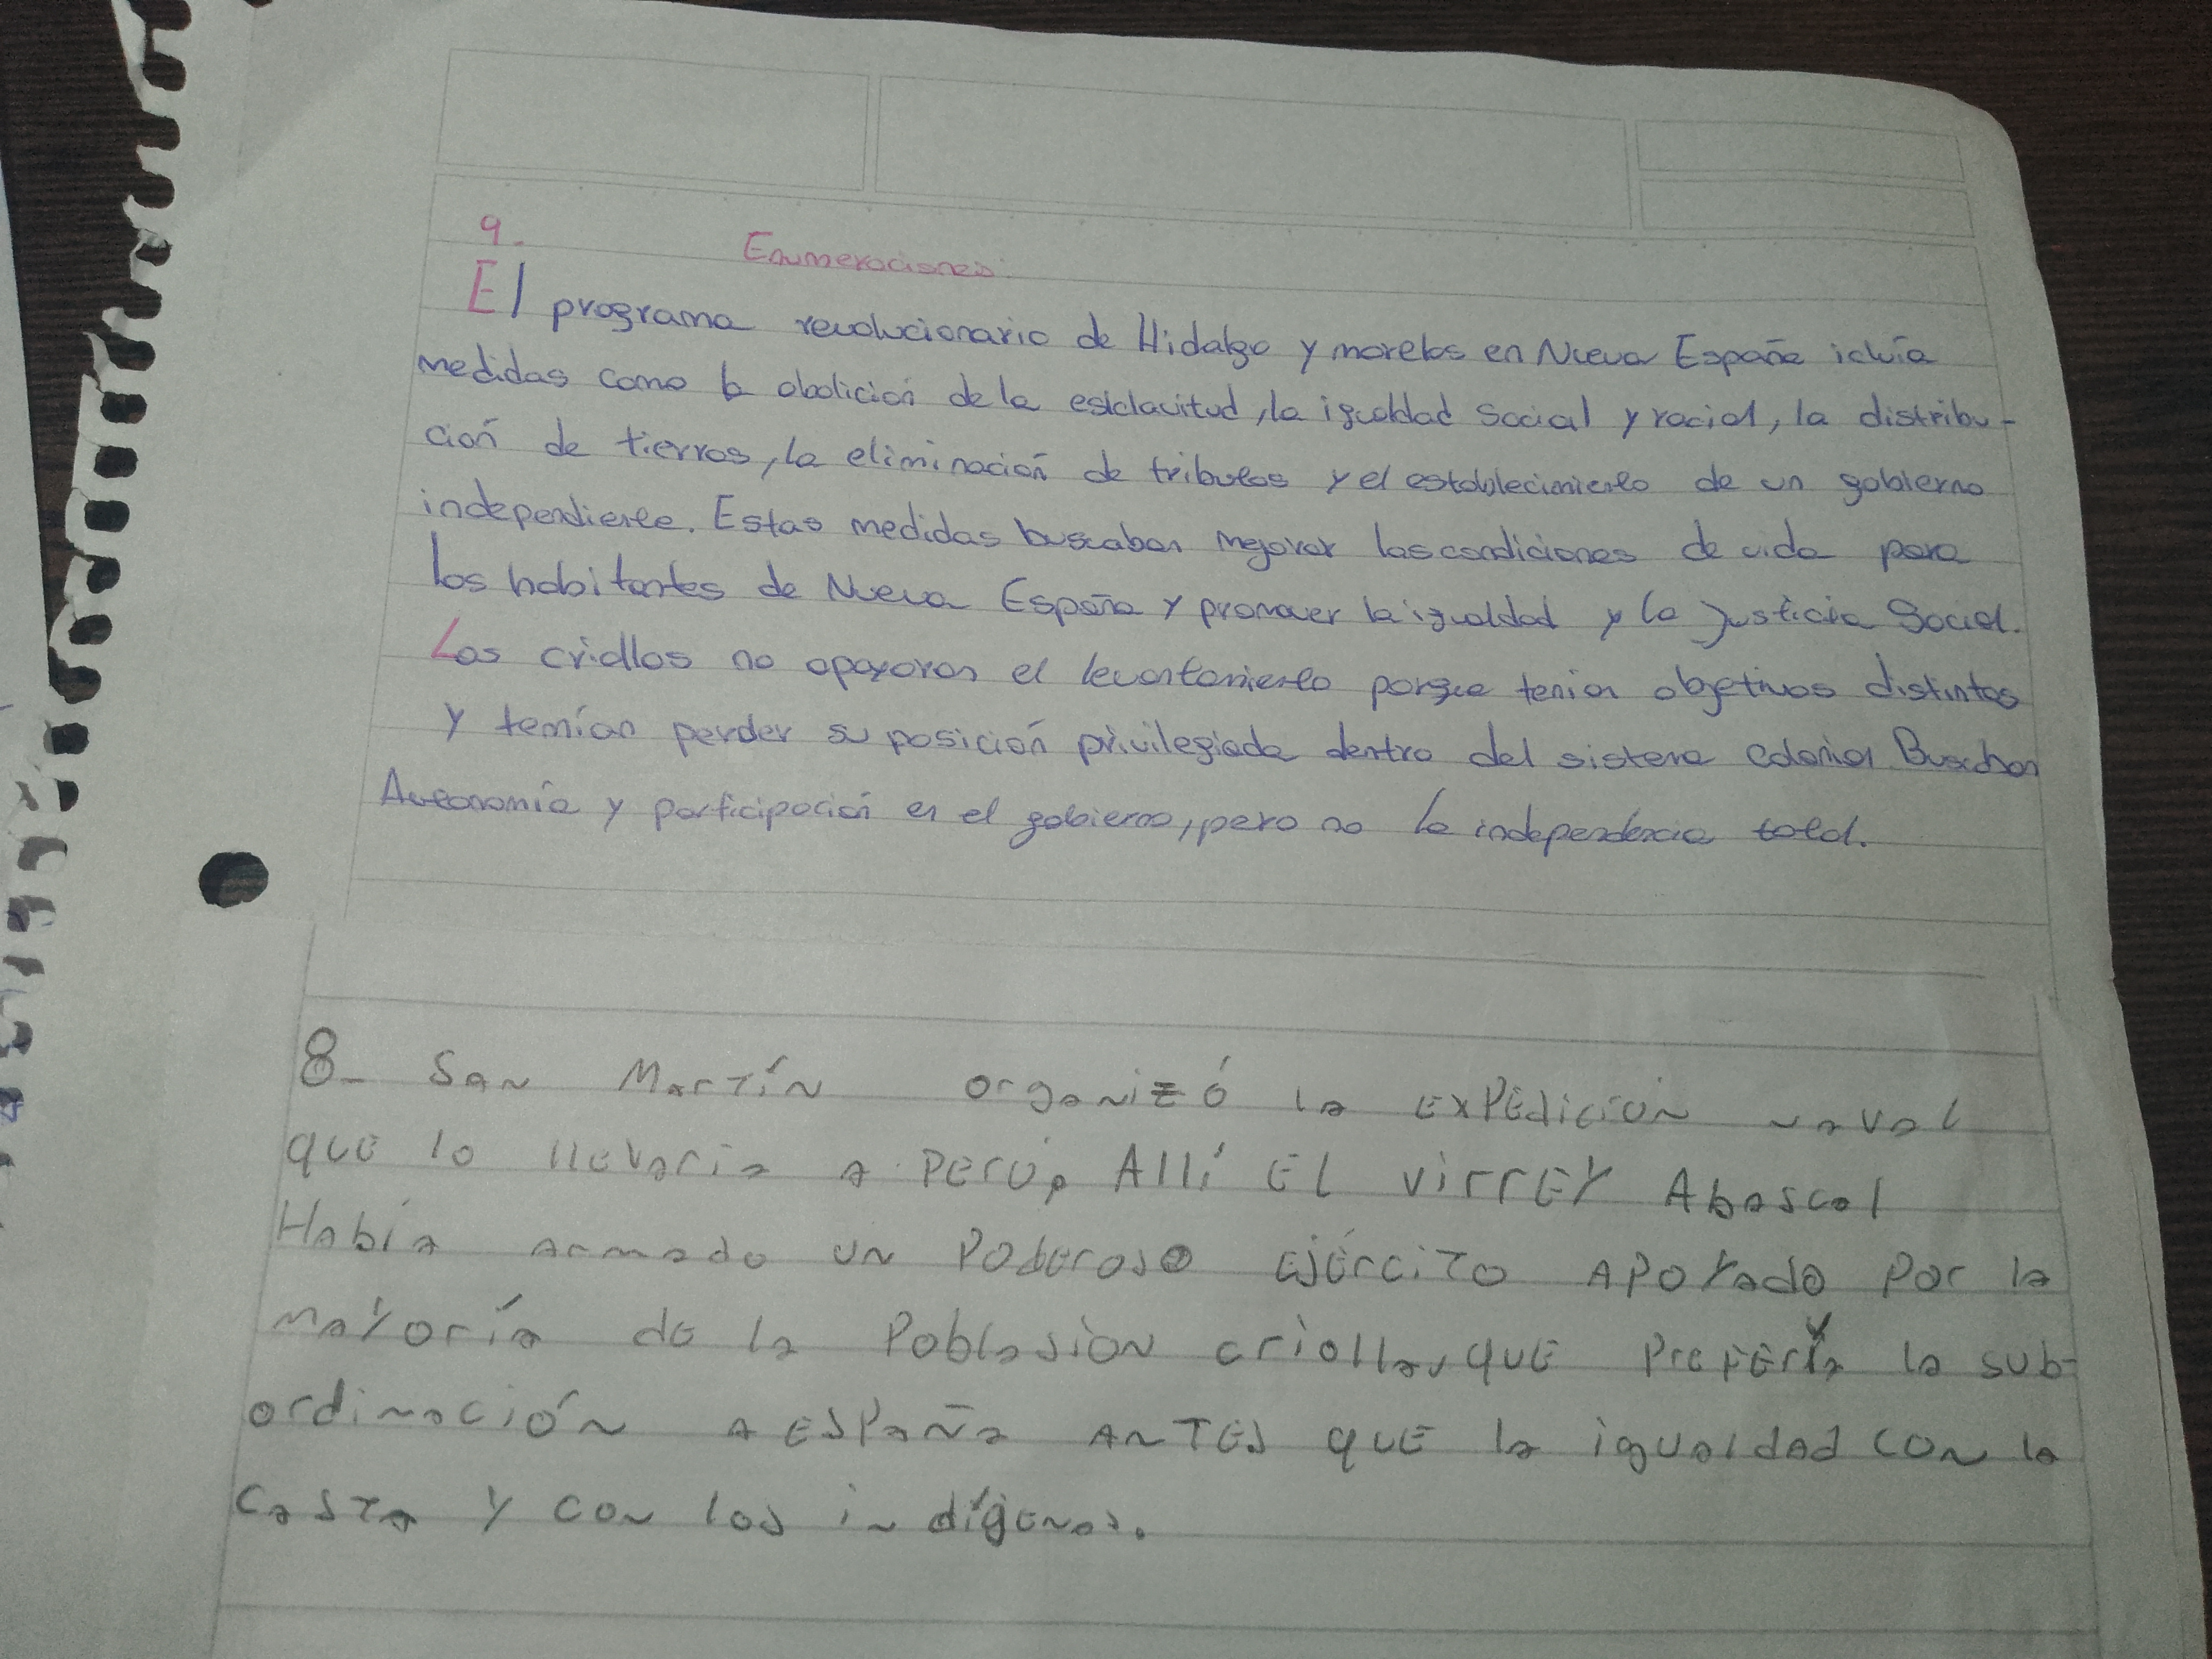 9.
Enumeraciones:
El programa revolucionario de Hidalgo y morelos en Nueva España icluía
medidas como la abolición de la esclavitud, la igualdad Social y racial, la distribu-
ción de tierras, la eliminación de tributos y el establecimiento de un gobierno
independiente. Estas medidas buscaban mejorar las condiciones de vida para
los habitantes de Nueva España y promover la igualdad y la Justicia Social.
Los criollos no apoyaron el levantamiento porque tenian objetivos distintos
y temían perder su posición privilegiada dentro del sistema colonial. Buscaban
Autonomía y participación en el gobierno, pero no la independencia total.
8_ SAN Martín organizó la Expedición naval
que lo llevaria a Perú, Allí El virrey Abascal
Había armado un Poderoso ejército apoyado por la
mayoría de la Poblasion criolla, que prefería la sub-
ordinación a España antes que la igualdad con la
casta y con los indígenas.